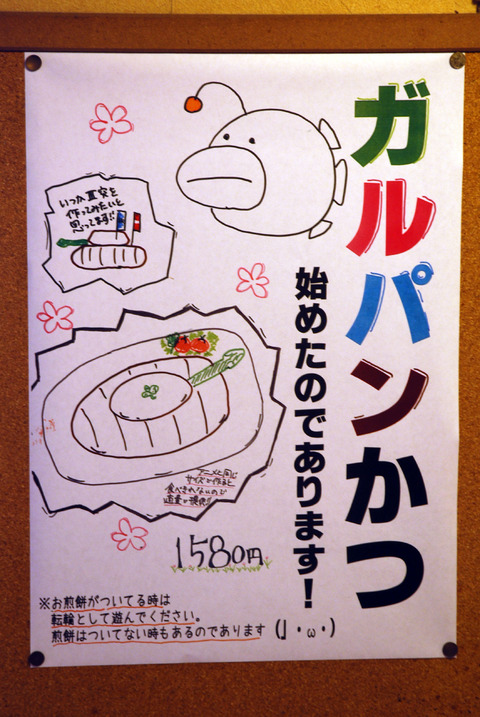 ガルパンかつ
始めたのであります！
いつか直突を
作ってみたいと
思ってます!!
アニメと同じ
サイズで作ると
食べきれないので
適量で提供!!
1580円
※お煎餅がついてる時は
転輪として遊んでください。
煎餅はついてない時もあるのであります(｣・ω・)